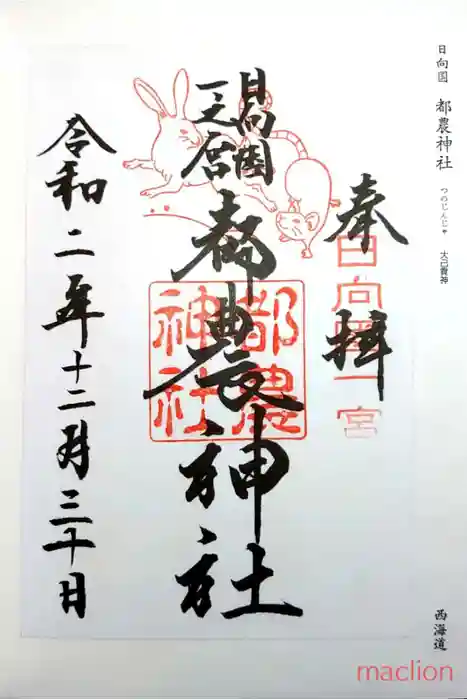 日向国 都農神社 つのじんじゃ 大己貴神
西海道
奉拝
日向国一宮
日向国
一之宮
都農神社
都農
神社
令和二年十二月三十日
maclion